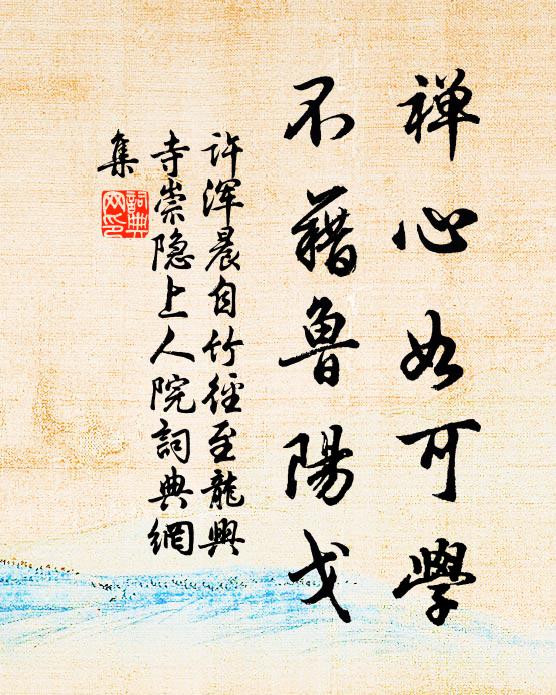 禅心如可學
不藉魯陽戈
许浑晨自竹徑至龍興
寺崇隐上人院詞典網
集
詞典
网印